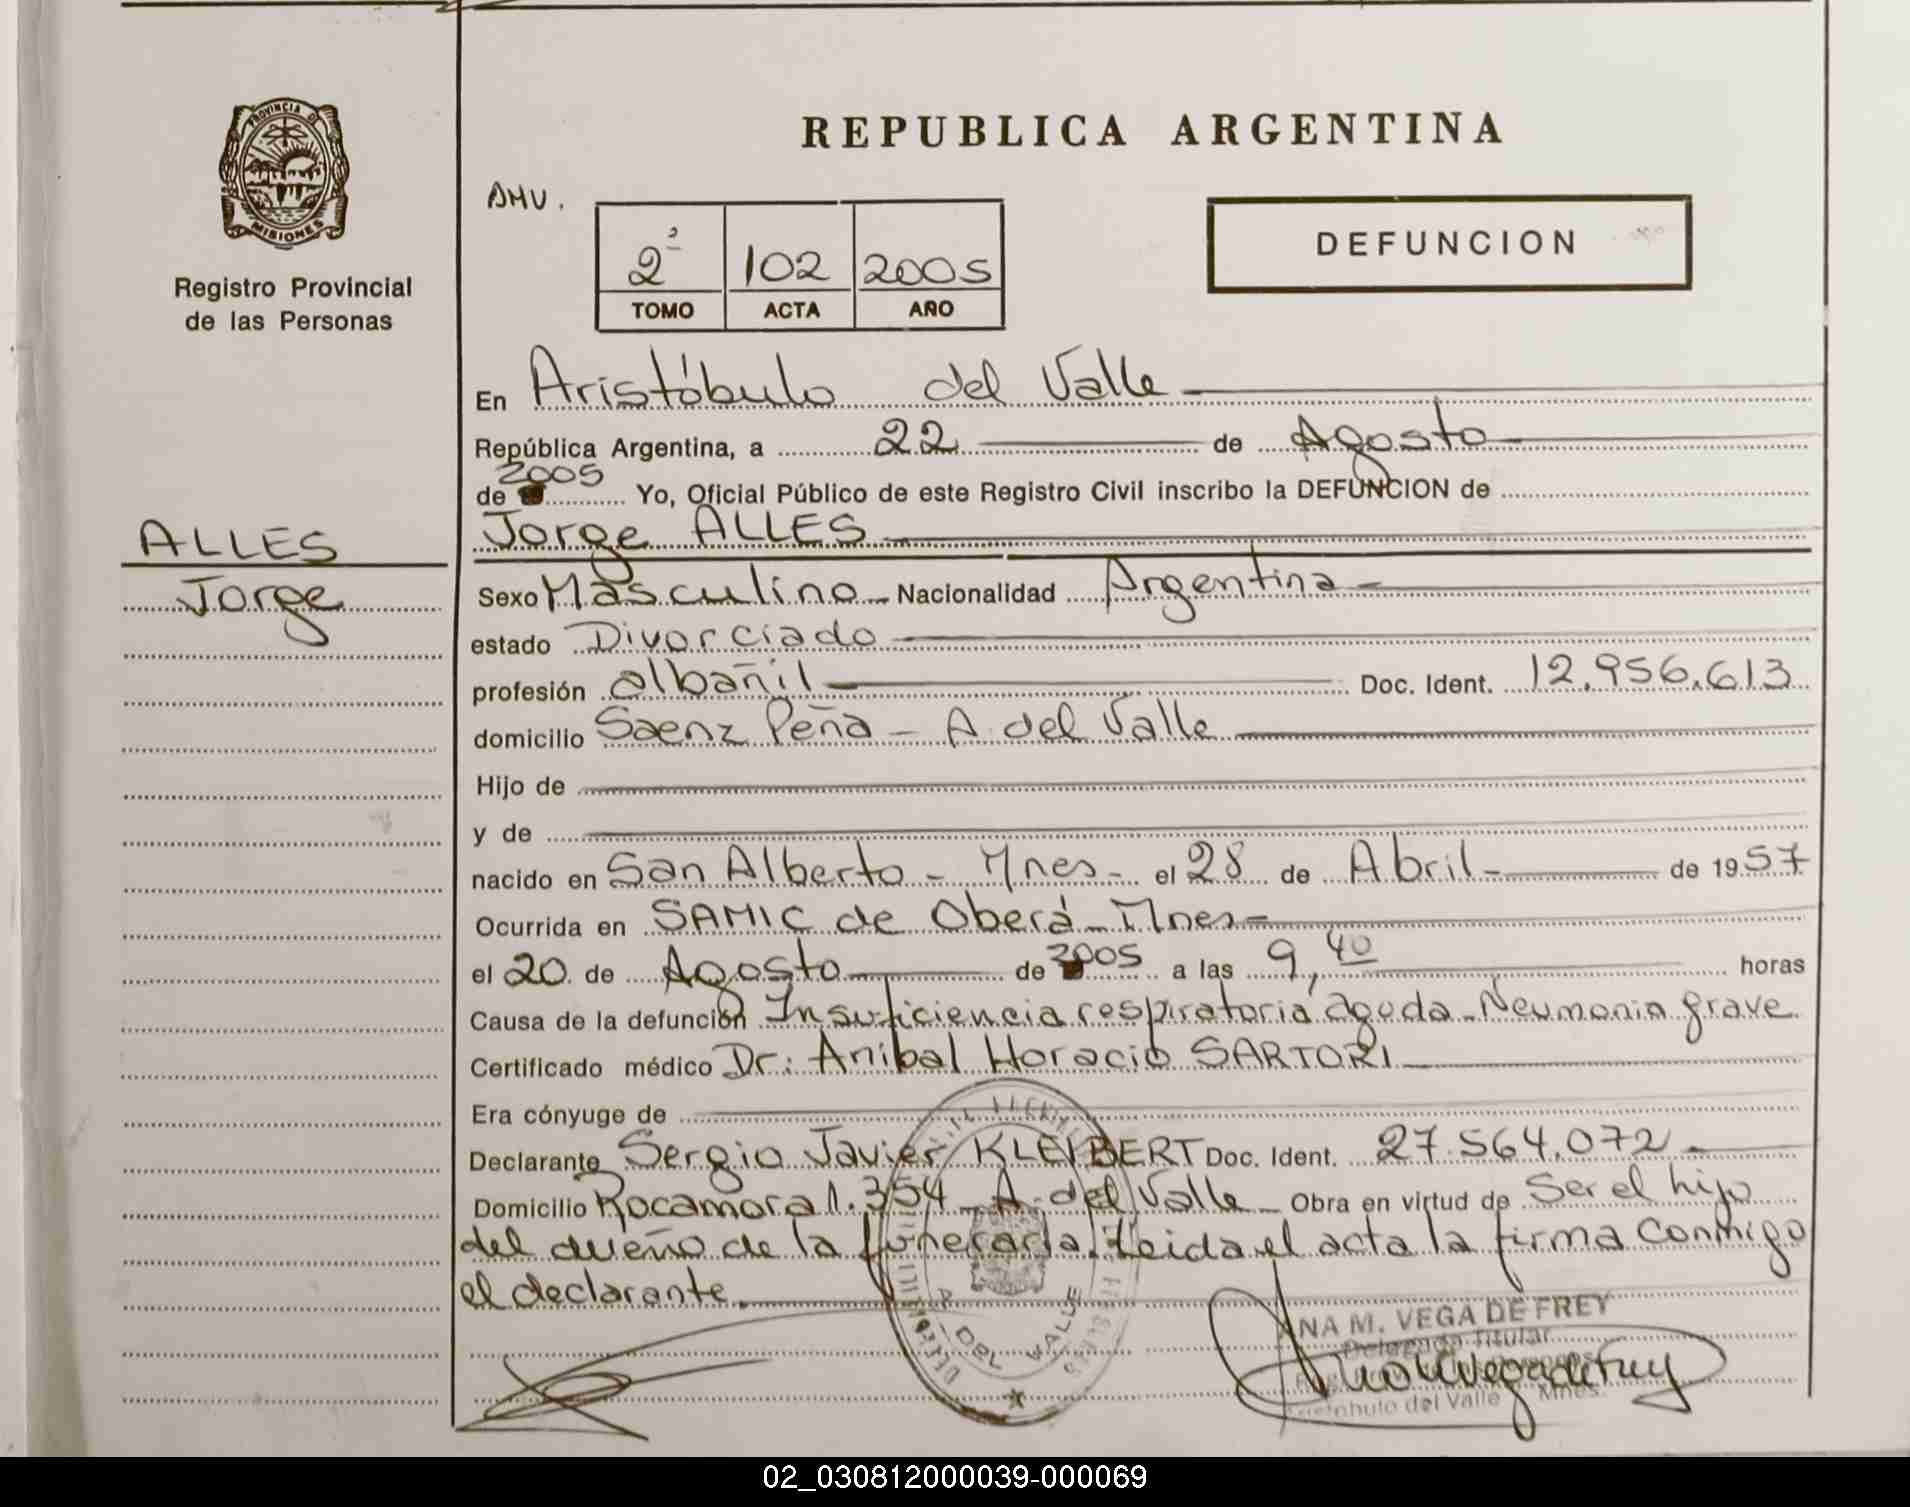 PROVINCIA DE
MISIONES
Registro Provincial
de las Personas
ALLES
Jorge
REPUBLICA ARGENTINA
AMV.
2º 102 2005
TOMO ACTA AÑO
DEFUNCION
En Aristóbulo del Valle
República Argentina, a 22 de Agosto
de 2005 Yo, Oficial Público de este Registro Civil inscribo la DEFUNCION de
Jorge ALLES
Sexo Masculino Nacionalidad Argentina
estado Divorciado
profesión albañil Doc. Ident. 12.956.613
domicilio Saenz Peña - A. del Valle
Hijo de
y de
nacido en San Alberto - Mnes - el 28 de Abril - de 1957
Ocurrida en SAMIC de Oberá - Mnes -
el 20 de Agosto de 2005 a las 9,40 horas
Causa de la defunción Insuficiencia respiratoria aguda - Neumonia grave
Certificado médico Dr: Aníbal Horacio SARTORI
Era cónyuge de
Declarante Sergio Javier KLEIBERT Doc. Ident. 27.564.072 -
Domicilio Rocamora 1.354 - A. del Valle - Obra en virtud de Ser el hijo
del dueño de la funeraria. Leida el acta la firma conmigo
el declarante.
A. DEL VALLE
ANA M. VEGA DE FREY
Delegada Titular
Aristóbulo del Valle - Mnes.
02_030812000039-000069